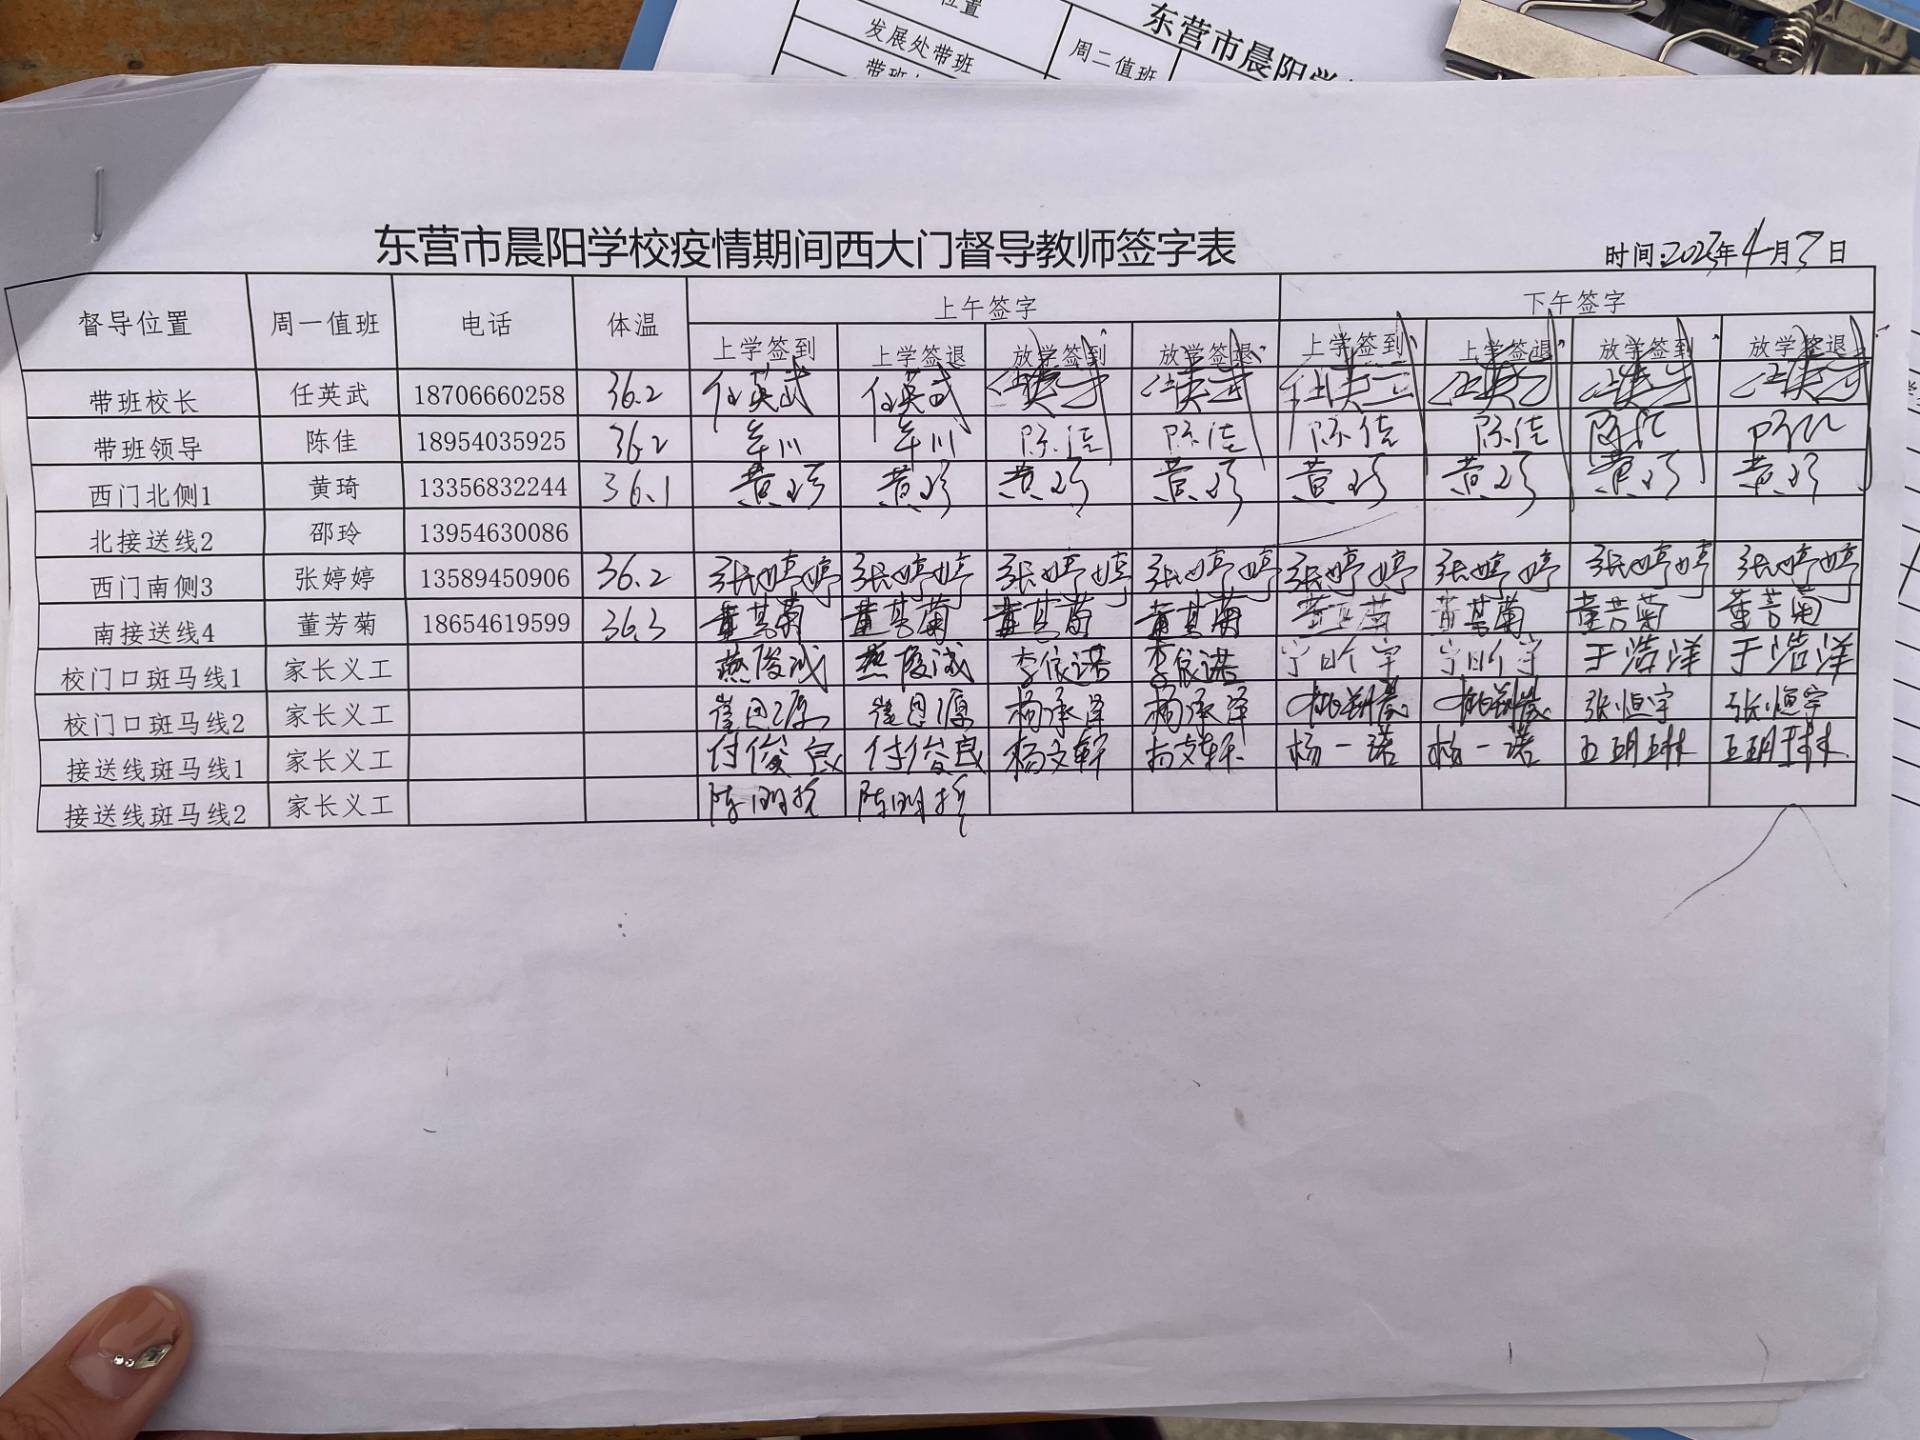 位置
发展处带班
周二值班
东营市晨阳学
东营市晨阳学校疫情期间西大门督导教师签字表
时间:2023年4月3日
督导位置 周一值班 电话 体温 上午签字 下午签字
上学签到 上学签退 放学签到 放学签退 上学签到 上学签退 放学签到 放学签退
带班校长 任英武 18706660258 36.2 任英武 任英武 任英武 任英武 任英武 任英武 任英武 任英武
带班领导 陈佳 18954035925 36.2 牟川 牟川 陈佳 陈佳 陈佳 陈佳 陈佳 陈佳
西门北侧1 黄琦 13356832244 36.1 黄琦 黄琦 黄琦 黄琦 黄琦 黄琦 黄琦 黄琦
北接送线2 邵玲 13954630086
西门南侧3 张婷婷 13589450906 36.2 张婷婷 张婷婷 张婷婷 张婷婷 张婷婷 张婷婷 张婷婷 张婷婷
南接送线4 董芳菊 18654619599 36.3 董芳菊 董芳菊 董芳菊 董芳菊 董芳菊 董芳菊 董芳菊 董芳菊
校门口斑马线1 家长义工 燕俊诚 燕俊诚 李依诺 李依诺 宁昕宇 宁昕宇 于浩洋 于浩洋
校门口斑马线2 家长义工 崔恩源 崔恩源 杨承泽 杨承泽 张恒宇 张恒宇
接送线斑马线1 家长义工 付俊良 付俊良 杨文轩 杨文轩 杨一诺 杨一诺 王玥琳 王玥琳
接送线斑马线2 家长义工